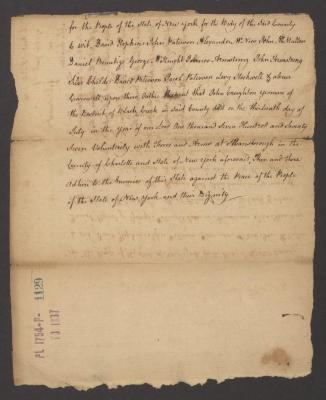 for the People of the State of New York for the Body of the said County
to wit, David Hopkins John Paterson Alexander McNish John McMullen
Daniel George McKnight Ebenezer Armstrong John Armstrong
Childs David Paterson Jacob Paterson Levy Stockwell Ebenr
upon their Oaths that John Creighton Yeoman of
the District of Black Creek in said County did on the thirteenth day of
July in the Year of our Lord One thousand Seven Hundred and Seventy
Seven Voluntarily with Force and Arms at in the
County of Charlotte and State of New York aforesaid, Then and there
Adhere to the Enemies of this State against the Peace of the People
of the State of New York and their Dignity
PL 1754-P-
1129